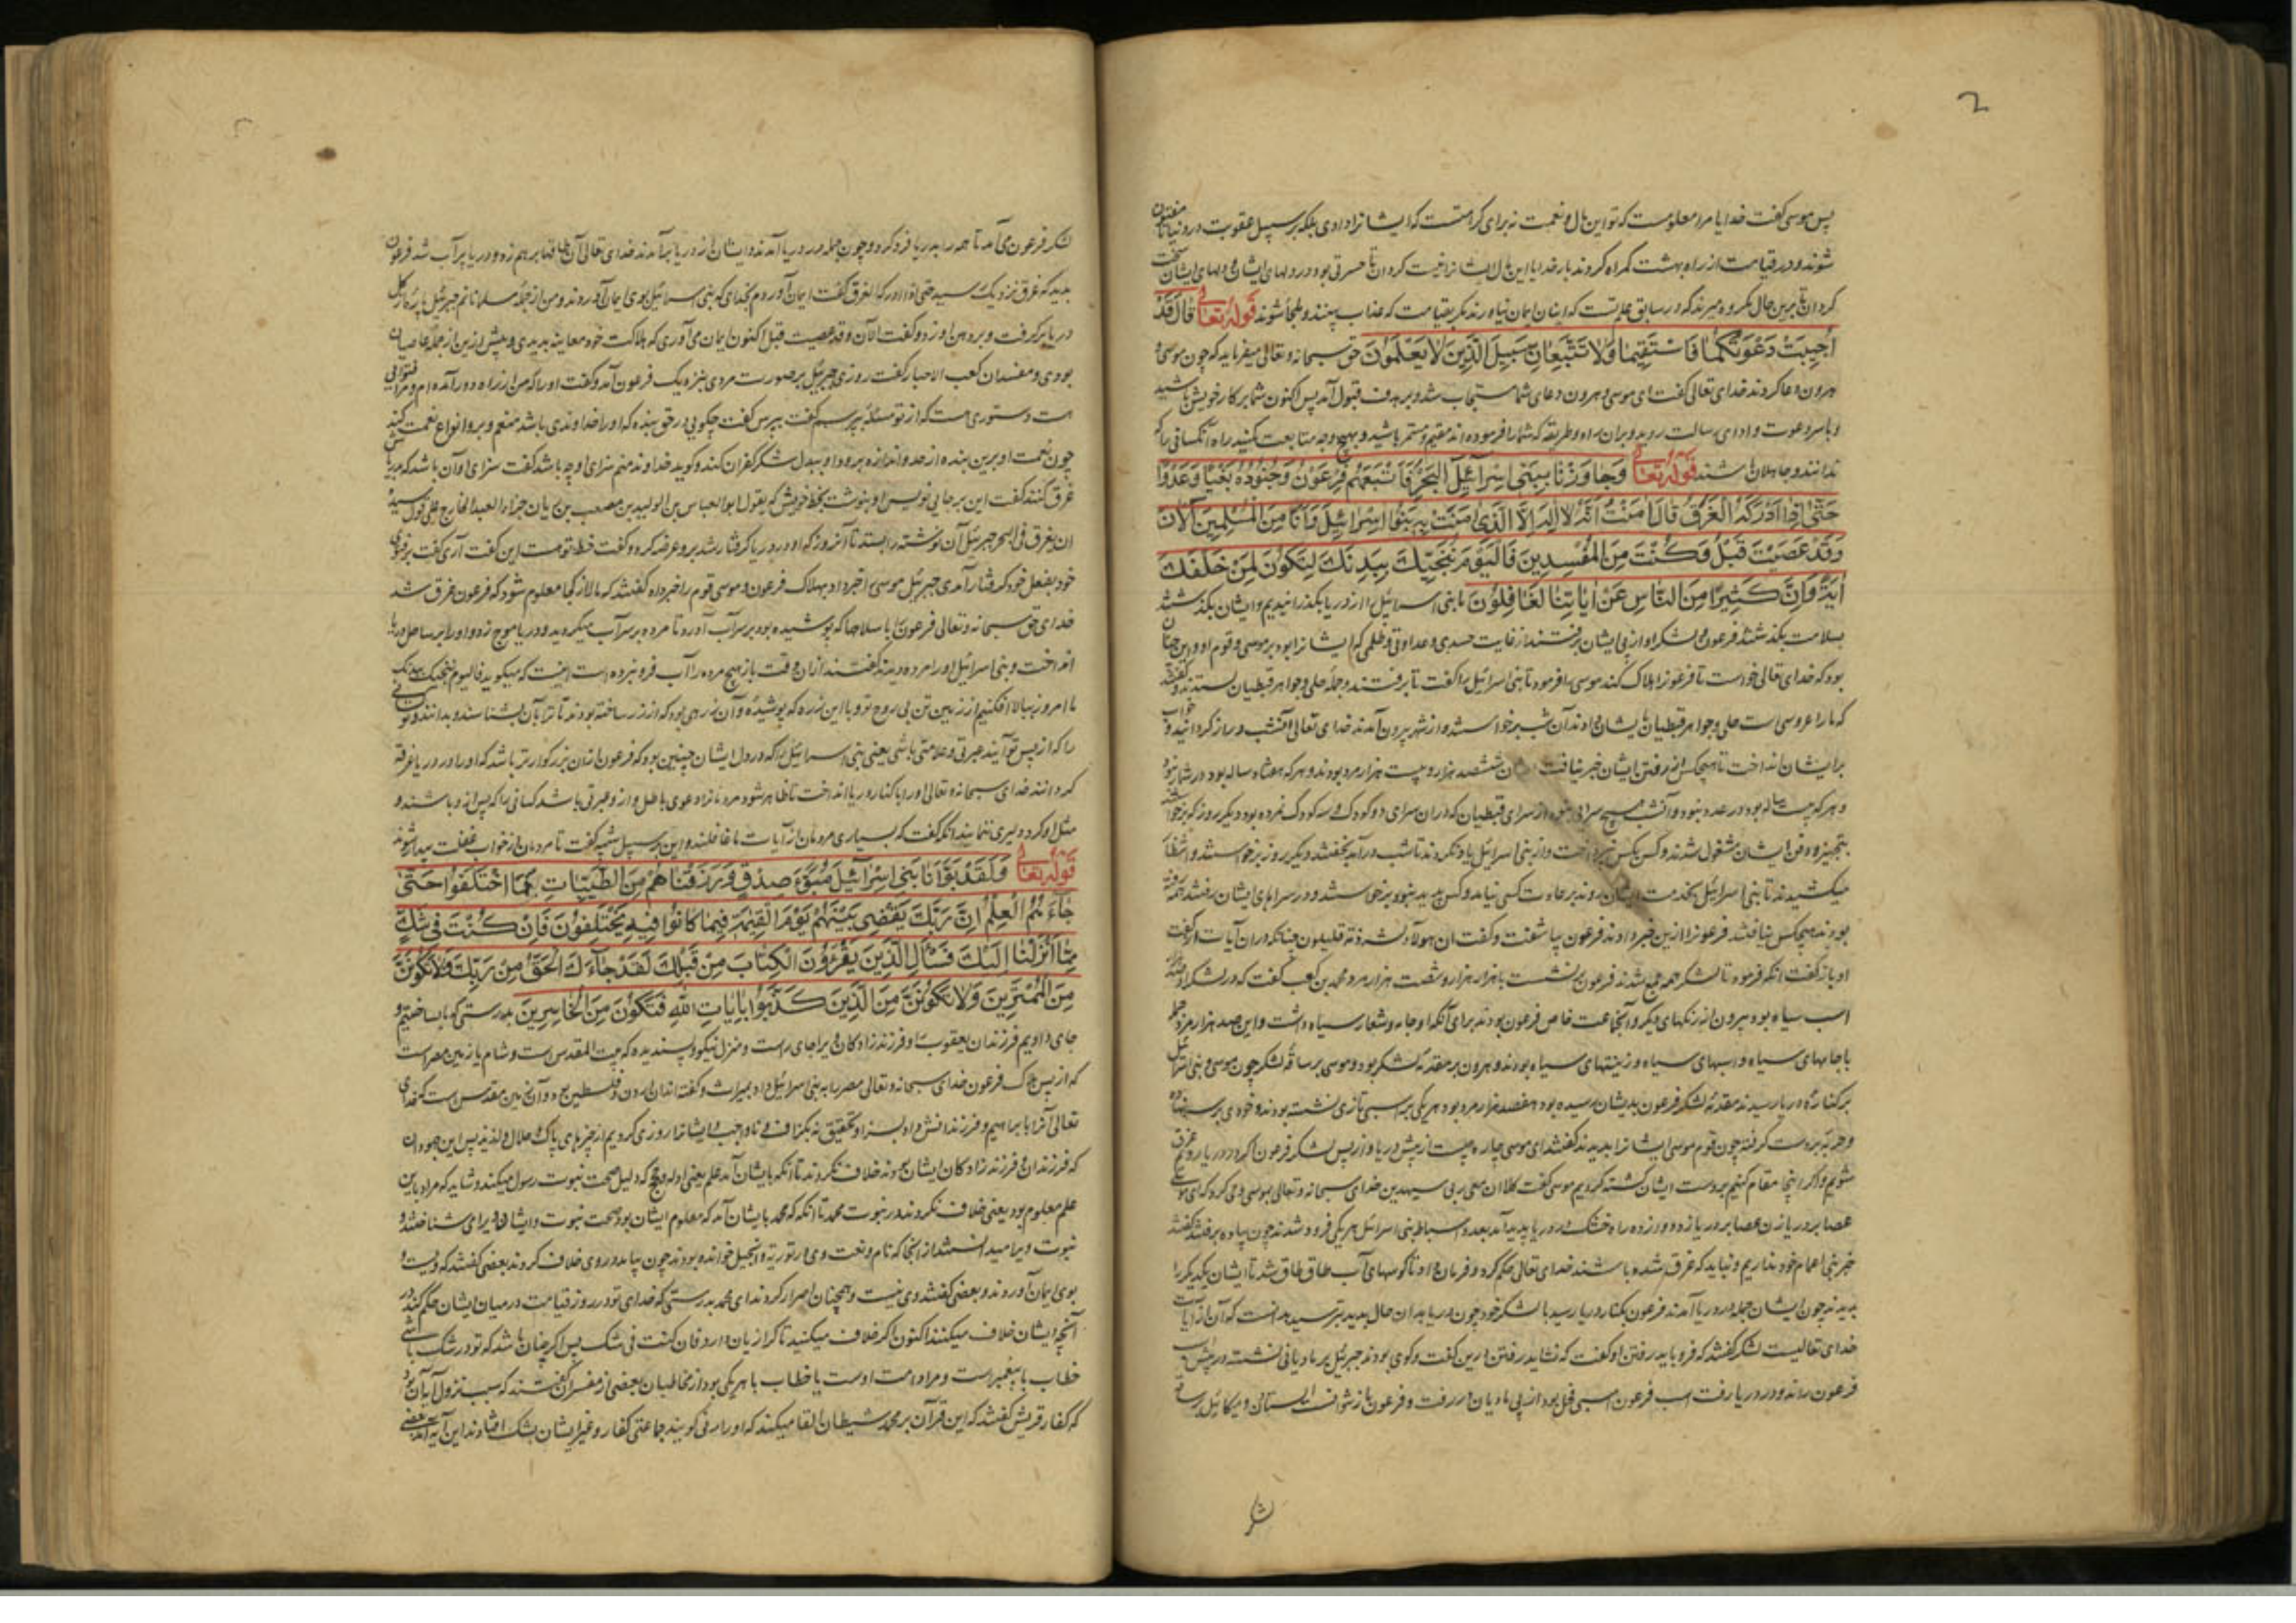 2
پس موسی گفت خدایا مرا معلومست که تو این مال و نعمت نه برای کرامتست که ایشانرا دادی بلکه بر سبیل عقوبت در دنیا تا مفتون
شوند و در قیامت از راه بهشت گمراه گردند بار خدایا این مال ایشانرا نیست گردان تا حسرتی بود در دلهای ایشان و دلهای ایشان سخت
گردان تا برین حال مکروه میرند که در سابق علم تست که اینان ایمان نیاورند مگر بقیامت که عذاب ببینند و ملجأ شوند قوله تعالی قال قد
اجیبت دعوتکما فاستقیما ولا تتبعان سبیل الذین لا یعلمون حق سبحانه و تعالی میفرماید که چون موسی و
هرون دعا کردند خدای تعالی گفت ای موسی و هرون دعای شما مستجاب شد و بر هدف قبول آمد پس اکنون شما بر کار خویش باشید
و با سر دعوت و ادای رسالت روید و بران راه و طریقه که شما را فرموده اند مقیم و مستمر باشید و بهیچ وجه متابعت مکنید راه آنکسانی را که
ندانند و جاهلان باشند قوله تعالی وجاوزنا ببنی اسرائیل البحر فاتبعهم فرعون وجنوده بغیا وعدوا
حتی اذا ادرکه الغرق قال امنت انه لا اله الا الذی امنت به بنوا اسرائیل وانا من المسلمین الآن
وقد عصیت قبل وکنت من المفسدین فالیوم ننجیک ببدنک لتکون لمن خلفک
ایة وان کثیرا من الناس عن ایاتنا لغافلون ما بنی اسرائیل را از دریا بگذرانیدیم و ایشان بگذشتند
بسلامت بگذشتند فرعون و لشکر او از پی ایشان برفتند از غایت حسد و عداوتی و ظلمی که ایشانرا بود بر موسی و قوم او و این چنان
بود که خدای تعالی خواست تا فرعونرا هلاک کند موسی را فرمود تا بنی اسرائیل را گفت تا برفتند و جمله حلی و جواهر قبطیان بستدند و گفتند
که ما را عروسی است حلی و جواهر قبطیان بایشان دادند آن شب برخواستند و از شهر بیرون آمدند خدای تعالی آنشب دراز گردانید و خواب
بر ایشان انداخت تا هیچکس از رفتن ایشان خبر نیافت ششصد هزار و بیست هزار مرد بودند و هر که هشتاد ساله بود در شمار نبود
و هر که بیست ساله بود در عدد نبود و آنشب هیچ سرایی نبود از سرای قبطیان که دران سرای دو کودک و سه کودک نمرده بود دیگر روز که برخواستند
بتجهیز و دفن ایشان مشغول شدند و کس بکس نپرداخت و از بنی اسرائیل یاد نکردند تا شب درآمد بخفتند دیگر روز برخواستند و انتظار
میکشیدند تا بنی اسرائیل بخدمت ایشان روند بر عادت کسی نیامد و کس پدید نبود برخواستند و در سراهای ایشان رفتند همه رفته
بودند هیچکس نیافتند فرعونرا ازین خبر دادند فرعون بیاشفت و گفت ان هولاء لشرذمة قلیلون چنانکه دران آیات از گفت
او باز گفت آنکه فرمود تا لشکر همه جمع شدند فرعون برنشست با هزار هزار و شصت هزار مرد محمد بن کعب گفت که در لشکر او صد هزار
اسب سیاه بود بیرون از رنگهای دیگر و آنجماعت خاص فرعون بودند برای آنکه او جامه و شعار سیاه داشت و این صد هزار مرد جمله
با جامهای سیاه و اسبهای سیاه و زینتهای سیاه بودند و هرون بر مقدمه لشکر بود و موسی بر ساقه لشکر چون موسی و بنی اسرائیل
بر کناره دریا رسیدند مقدمه لشکر فرعون بدیشان رسیده بود هفصد هزار مرد بود هر یکی بر اسبی تازی نشسته بودند و خودی بر سر نهاده
و حربه بدست گرفته چون قوم موسی ایشانرا بدیدند گفتند ای موسی چاره چیست از پیش دریا و از پس لشکر فرعون اگر در دریا رویم غرق
شویم و اگر اینجا مقام کنیم بدست ایشان کشته گردیم موسی گفت کلا ان معی ربی سیهدین خدای سبحانه و تعالی بموسی وحی کرد که ای موسی
عصا بر دریا زن عصا بر دریا زد دوازده راه خشک در دریا پدید آمد بعدد اسباط بنی اسرائیل هر یکی فرو شدند چون پاره برفتند گفتند
خبر بنی اعمام خود نداریم و نباید که غرق شده باشند خدای تعالی حکم کرد و فرمان داد تا کوههای آب طاق طاق شد تا ایشان یکدیگر را
بدیدند چون ایشان جمله در دریا آمدند فرعون بکنار دریا رسید با لشکر خود چون دریا بدان حال بدید بترسید بدانست که آن از آیات
خدای تعالیست لشکر گفتند که فرو باید رفتن او گفت که نشاید رفتن درین گفت و گوی بودند جبرئیل بر مادیانی نشسته در پیش اسب
فرعون راند و در دریا رفت اسب فرعون اسبی فحل بود از پی مادیان در رفت و فرعون باز نتوانست استادن و میکائیل بر ساقه
لشکر
لشکر فرعون می آمد تا همه را بدریا فرو کرد و چون جمله در دریا آمدند و ایشان از دریا برآمدند خدای تعالی آن طاقها بر هم زد و دریا پر آب شد فرعون
بدید که غرق نزدیک رسید حتی اذا ادرکه الغرق گفت ایمان آوردم بخدای که بنی اسرائیل بوی ایمان آوردند و من از جمله مسلمانانم جبرئیل پاره از گل
دریا برگرفت و بر دهن او زد و گفت الآن وقد عصیت قبل اکنون ایمان می آوری که هلاکت خود معاینه بدیدی و پیش ازین از جمله عاصیان
بودی و مفسدان کعب الاحبار گفت روزی جبرئیل بر صورت مردی بنزدیک فرعون آمد و گفت او را که من از راه دور آمده ام و مرا فتوایی
هست دستوری هست که از تو مسئله بپرسم گفت بپرس گفت چگویی در حق بنده که او را خداوندی باشد منعم و برو انواع نعمت کند
چون نعمت او برین بنده از حد و اندازه برود او ببدل شکر کفران کند و گوید خداوند منم سزای او چه باشد گفت سزای او آن باشد که بدریاش
غرق کنند گفت این بر جایی نویس او بنوشت بخط خویش که یقول ابو العباس بن الولید بن مصعب بن ریان جزاء العبد الخارج علی قول سیده
ان یغرق فی البحر جبرئیل آن نوشته را بستد تا آنروز که او در دریا گرفتار شد برو عرضه کرد و گفت خط تو هست این گفت آری گفت بفتوی
خود بفعل خود گرفتار آمدی جبرئیل موسی را خبر داد بهلاک فرعون و موسی قوم را خبر داد گفتند که ما را از کجا معلوم شود که فرعون غرق شد
خدای حق سبحانه و تعالی فرعون را با سلاحها که پوشیده بود بر سر آب آورد تا مرده بر سر آب میگردید و دریا موج زد و او را بر ساحل دریا
انداخت و بنی اسرائیل او را مرده دیدند گفتند ازان وقت باز هیچ مرده را آب فرو نبرده است اینست که میگوید فالیوم ننجیک ببدنک
ما امروز ببالا افکنیم از زمین تن بی روح تو و با این زره که پوشیده و آن زرهی بود که از زر ساخته بودند تا ترا بآن بشناسند و بدانند و تو کسانی
را که از پس تو آیند عبرتی و علامتی باشی یعنی بنی اسرائیل را که در دل ایشان چنین بود که فرعون ازان بزرگوارتر باشد که او را در دریا غرقه
گردانند خدای سبحانه و تعالی او را بکنار دریا انداخت تا ظاهر شود مردمانرا دعوی باطل و از و عبرتی باشد کسانی را که پس از و باشند و
مثل او کرد و دلیری ننمایند آنگه گفت که بسیاری مردمان از آیات ما غافلند و این بر سبیل تنبیه گفت تا مردمان از خواب غفلت بیدار شوند
قوله تعالی ولقد بوأنا بنی اسرائیل مبوء صدق ورزقناهم من الطیبات فما اختلفوا حتی
جاءهم العلم ان ربک یقضی بینهم یوم القیمة فیما کانوا فیه یختلفون فان کنت فی شک
مما انزلنا الیک فسئل الذین یقرؤن الکتاب من قبلک لقد جاءک الحق من ربک فلا تکونن
من الممترین ولا تکونن من الذین کذبوا بایات الله فتکون من الخاسرین بدرستی که ما بساختیم و
جای دادیم فرزندان یعقوب را و فرزندزادگان ویرا جای راست و منزل نیکو و پسندیده که بیت المقدس ست و شام یا زمین مصر است
که از پس هلاک فرعون خدای سبحانه و تعالی مصر را به بنی اسرائیل داد بمیراث و گفته اند اردن و فلسطین بود و آن زمین مقدس است که خدای
تعالی آنرا بابراهیم و فرزندانش داد بسزا و تحقیق نه بگزاف و ناواجب و ایشانرا روزی کردیم از چیزهای پاک و حلال و لذیذ پس این جهودان
که فرزندان و فرزندزادگان ایشان بودند خلاف نکردند تا آنکه بایشان آمد علم یعنی ادله و حجج که دلیل صحت نبوت رسول میکند و شاید که مراد باین
علم معلوم بود یعنی خلاف نکردند در نبوت محمد تا آنگه که محمد بایشان آمد که معلوم ایشان بود صحت نبوت و ایشان ویرا می شناختند و
نبوت ویرا میدانستند از آنجا که نام و نعت وی در توریة و انجیل خوانده بودند چون بیامد در وی خلاف کردند بعضی گفتند که ویست و
بوی ایمان آوردند و بعضی گفتند وی نیست و همچنان اصرار کردند ای محمد بدرستی که خدای تو در روز قیامت در میان ایشان حکم کند در
آنچه ایشان خلاف میکنند اکنون اگر خلاف میکنید تا گرازیان دارد فان کنت فی شک پس اگر چنان باشد که تو در شک باشی
خطاب با پیغمبر است و مراد امت اوست یا خطاب با هر یکی بود از مخاطبان بعضی از مفسران گفتند که سبب نزول آیه آن بود
که کفار قریش گفتند که این قرآن بر محمد شیطان القا میکند که او را رئی گویند جماعتی کفار و غیر ایشان بشک افتادند این آیه آمد بعضی